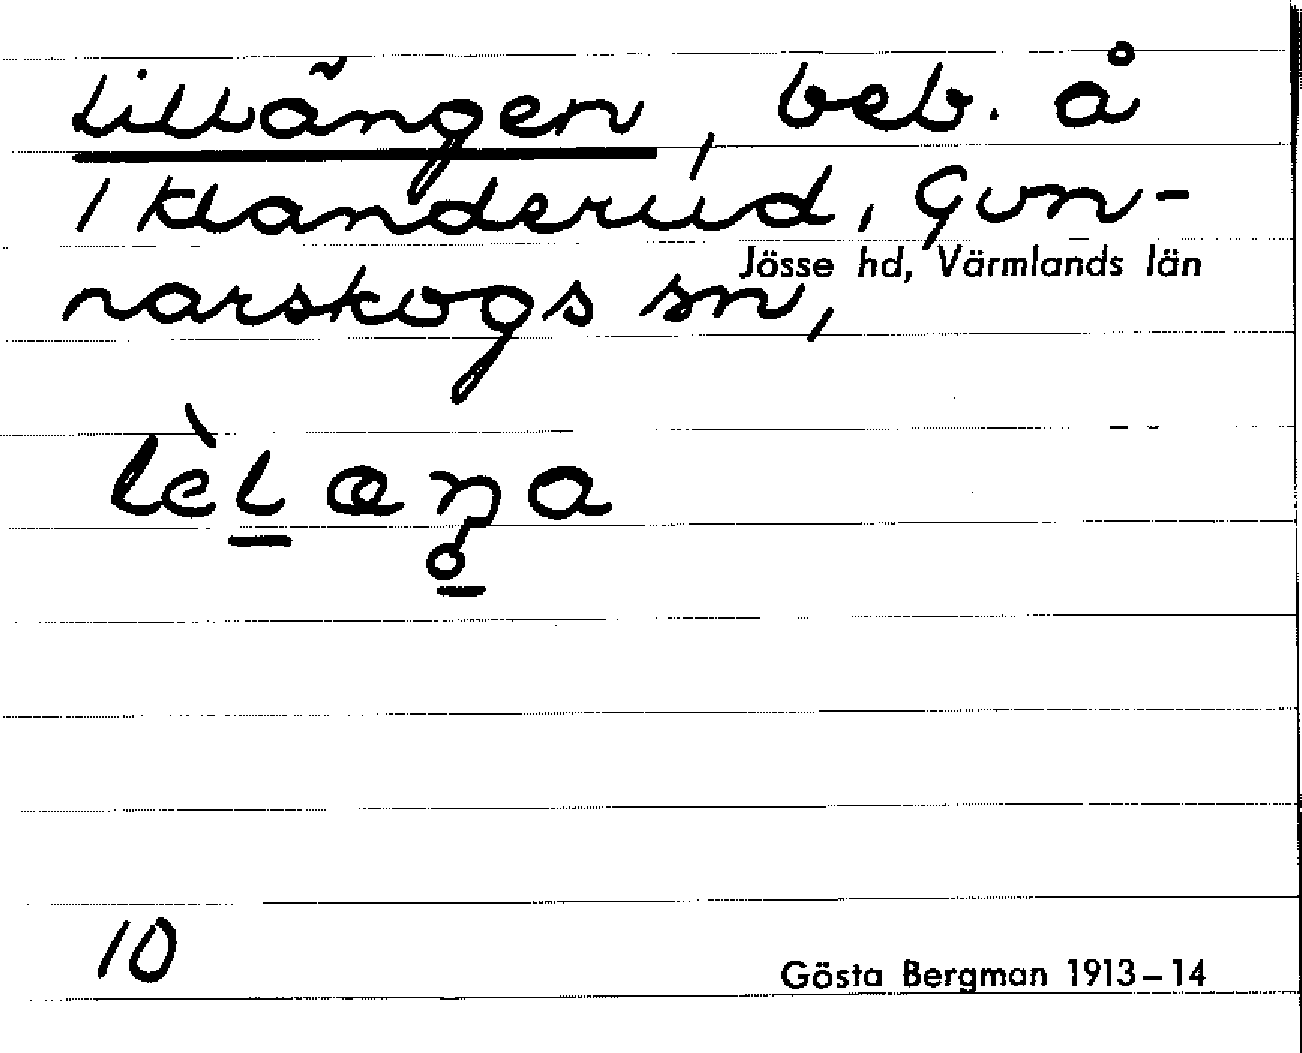 Lillängen, beb. å
1 Klanderud, Gun-
Jösse hd, Värmlands län
narskogs sn,
10
Gösta Bergman 1913–14